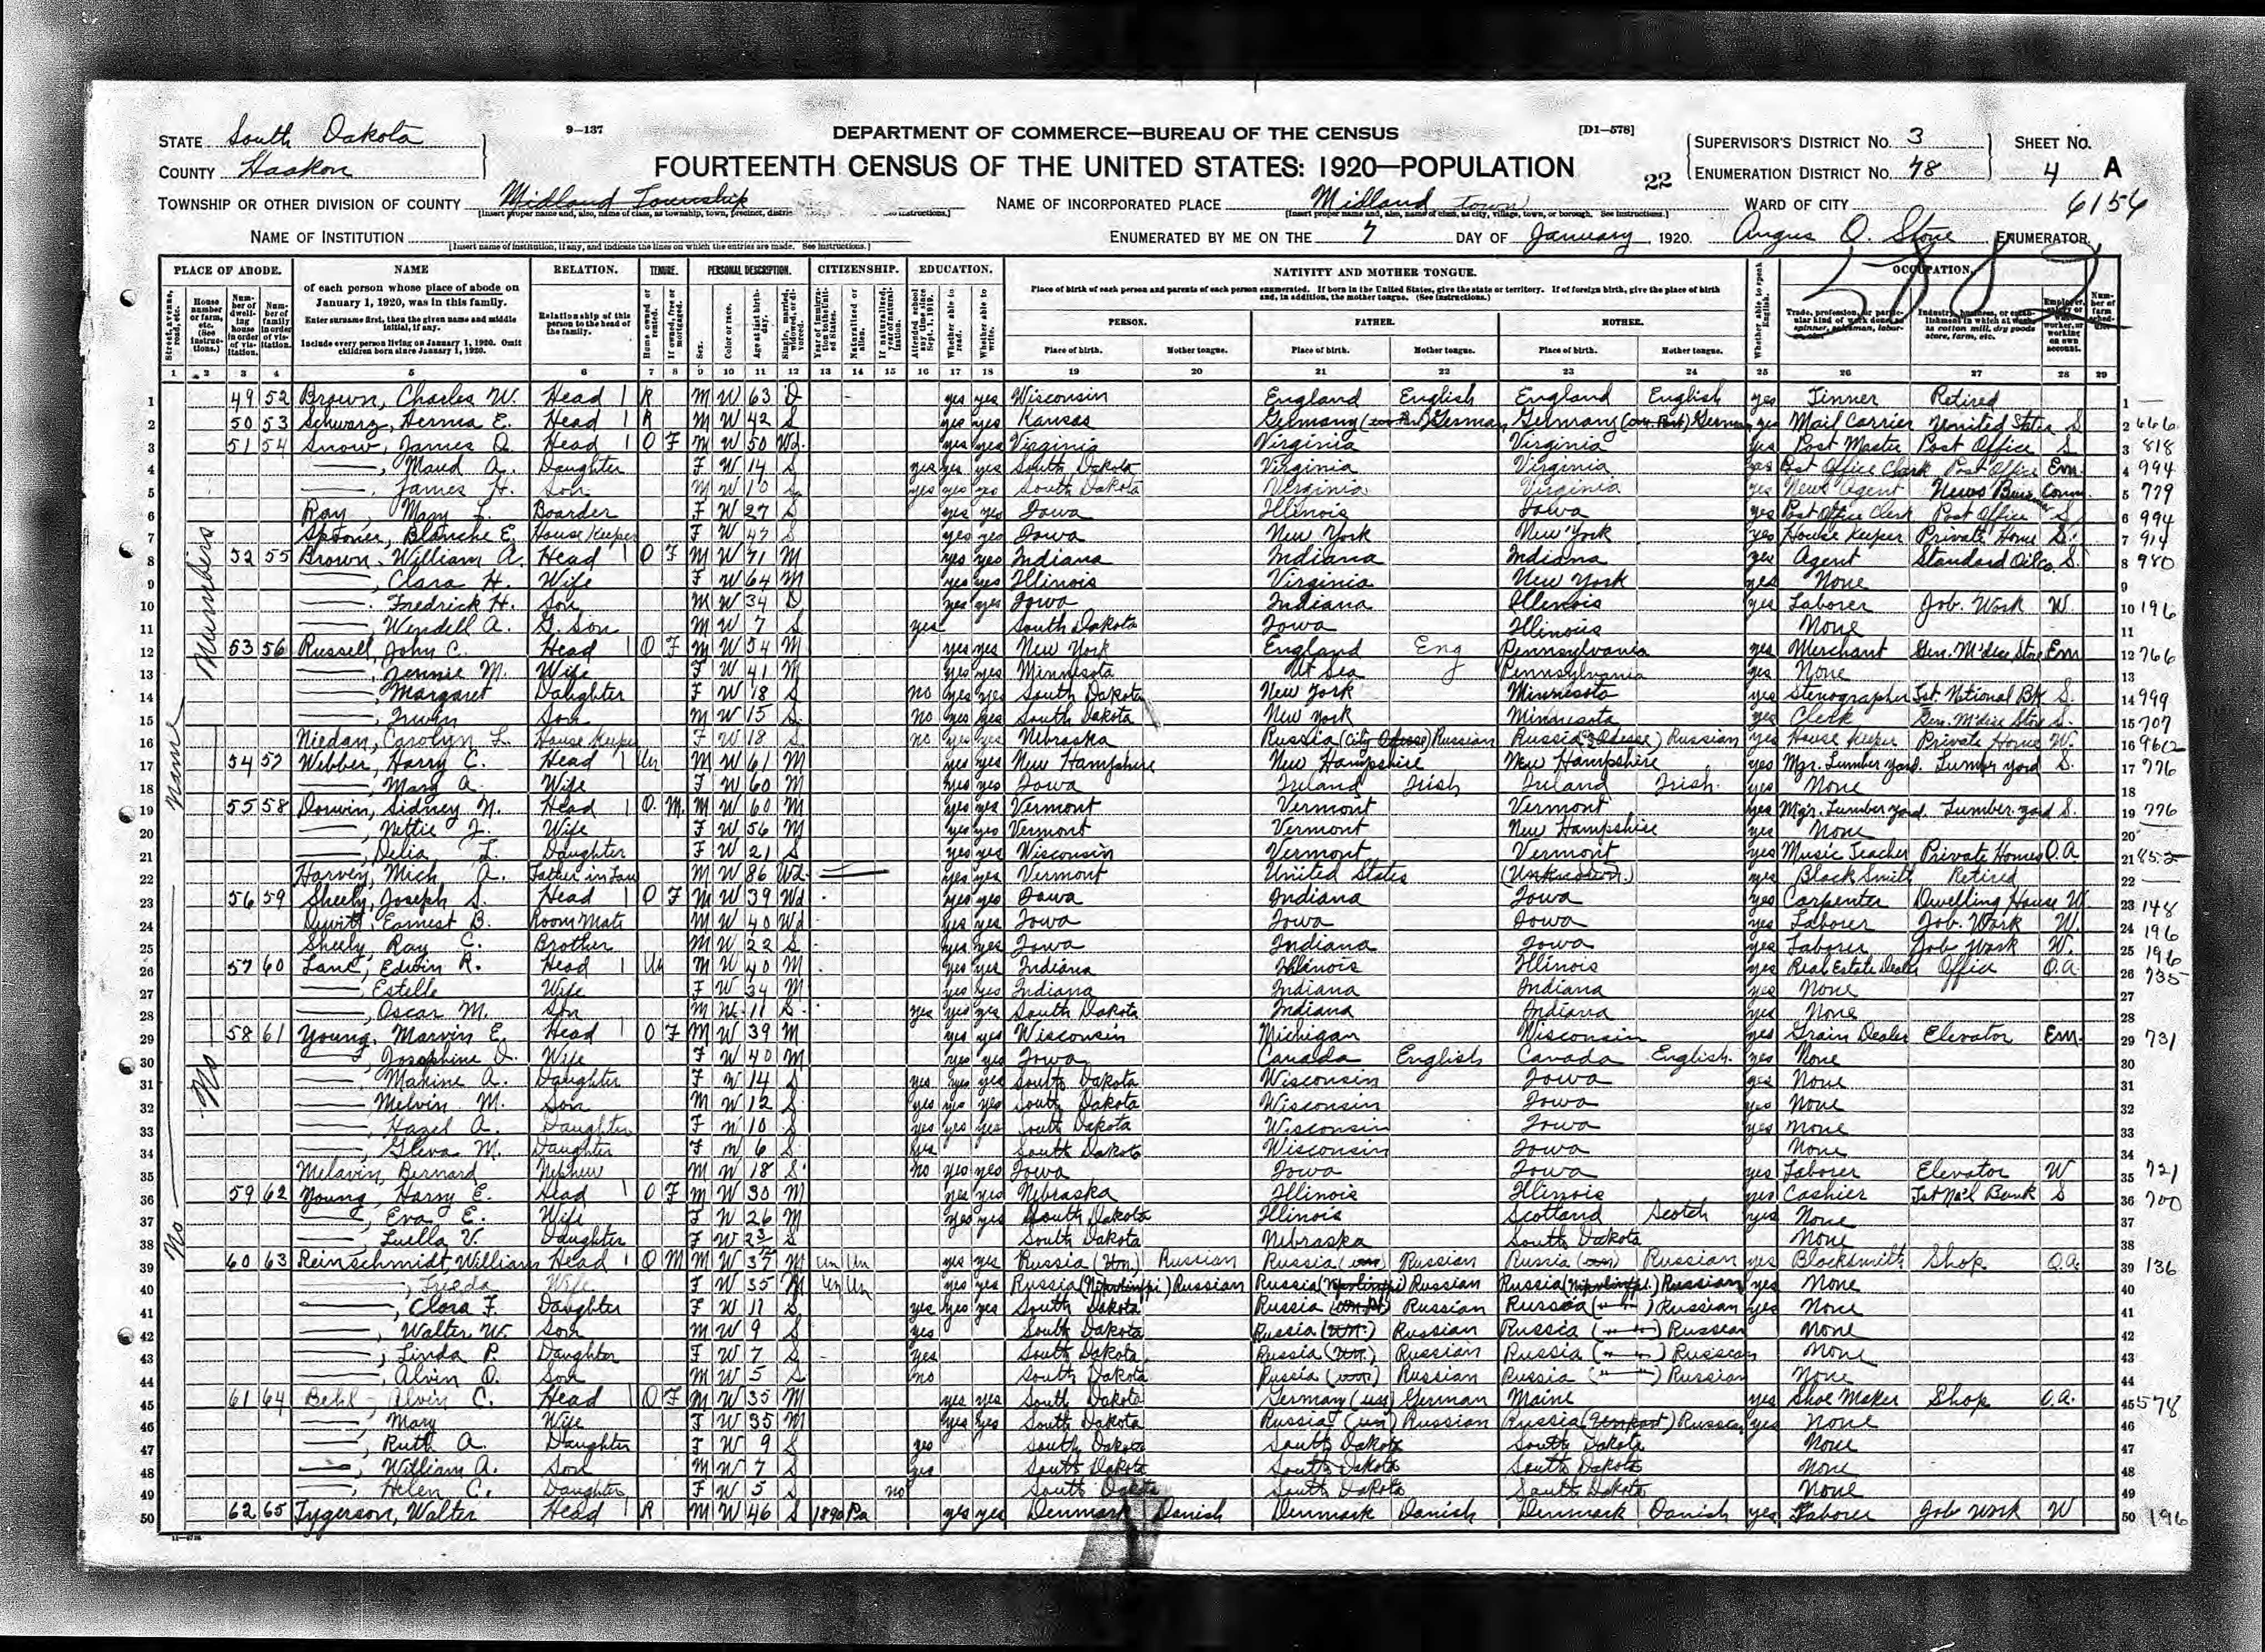 STATE South Dakota
COUNTY Haakon
9-137
DEPARTMENT OF COMMERCE—BUREAU OF THE CENSUS
[D1-578]
FOURTEENTH CENSUS OF THE UNITED STATES: 1920—POPULATION
22
SUPERVISOR'S DISTRICT No. 3
ENUMERATION DISTRICT No. 48
SHEET No.
4 A
6156
TOWNSHIP OR OTHER DIVISION OF COUNTY Midland Township
NAME OF INCORPORATED PLACE Midland town
WARD OF CITY
NAME OF INSTITUTION
[Insert name of institution, if any, and indicate the lines on which the entries are made. See instructions.]
ENUMERATED BY ME ON THE 7 DAY OF January, 1920. Angus O. Stone, ENUMERATOR
PLACE OF ABODE. NAME RELATION. TENURE. PERSONAL DESCRIPTION. CITIZENSHIP. EDUCATION. NATIVITY AND MOTHER TONGUE. OCCUPATION.
of each person whose place of abode on January 1, 1920, was in this family.
Enter surname first, then the given name and middle initial, if any.
Include every person living on January 1, 1920. Omit children born since January 1, 1920.
Relationship of this person to the head of the family.
Place of birth of each person and parents of each person enumerated. If born in the United States, give the state or territory. If of foreign birth, give the place of birth and, in addition, the mother tongue. (See instructions.)
PERSON. FATHER. MOTHER.
Place of birth. Mother tongue. Place of birth. Mother tongue. Place of birth. Mother tongue.
1 2 3 4 5 6 7 8 9 10 11 12 13 14 15 16 17 18 19 20 21 22 23 24 25 26 27 28 29
No name No Numbers
1 49 52 Brown, Charles W. Head 1 R M W 63 D yes yes Wisconsin England English England English yes Tinner Retired 1
2 50 53 Schwarz, Herma E. Head 1 R M W 42 S yes yes Kansas Germany German Germany German yes Mail Carrier United States S 2 666
3 51 54 Snow, James Q. Head 1 O F M W 50 Wd. yes yes Virginia Virginia Virginia yes Post Master Post Office S 3 818
4 ——, Maud A. Daughter F W 14 S yes yes yes South Dakota Virginia Virginia yes Post Office Clerk Post Office Em. 4 994
5 ——, James H. Son M W 10 S yes yes yes South Dakota Virginia Virginia yes News Agent News 5 779
6 Ray, Mary L. Boarder F W 27 S yes yes Iowa Illinois Iowa yes Post Office Clerk Post Office S 6 994
7 Spooner, Blanche E. House Keeper F W 47 S yes yes Iowa New York New York yes House Keeper Private Home S. 7 914
8 52 55 Brown, William A. Head 1 O F M W 71 M yes yes Indiana Indiana Indiana yes Agent Standard Oil Co. S. 8 980
9 ——, Clara H. Wife F W 64 M yes yes Illinois Virginia New York yes None 9
10 ——, Fredrick H. Son M W 34 D yes yes Iowa Indiana Illinois yes Laborer Job. Work W. 10 196
11 ——, Wendell A. G. Son M W 7 S yes South Dakota Iowa Illinois None 11
12 53 56 Russell, John C. Head 1 O F M W 54 M yes yes New York England Eng Pennsylvania yes Merchant Gen. M'dise Store Em 12 766
13 ——, Jennie M. Wife F W 41 M yes yes Minnesota At Sea Pennsylvania yes None 13
14 ——, Margaret Daughter F W 18 S no yes yes South Dakota New York Minnesota yes Stenographer 1st. National Bk S. 14 999
15 ——, Irwin Son M W 15 S no yes yes South Dakota New York Minnesota yes Clerk Gen. M'dise Store S. 15 707
16 Niedan, Carolyn L. House Keeper F W 18 S no yes yes Nebraska Russia (City Odesse) Russian Russia (Odesse) Russian yes House Keeper Private Home W. 16
17 54 57 Webber, Harry C. Head 1 Un M W 61 M yes yes New Hampshire New Hampshire New Hampshire yes Mgr. Lumber yard. Lumber yard S. 17 776
18 ——, Mary A. Wife F W 60 M yes yes Iowa Ireland Irish Ireland Irish. yes None 18
19 55 58 Dorwin, Sidney N. Head 1 O. M. M W 60 M yes yes Vermont Vermont Vermont yes Mgr. Lumber yard. Lumber. yard S. 19 776
20 ——, Nettie J. Wife F W 56 M yes yes Vermont Vermont New Hampshire yes None 20
21 ——, Delia L. Daughter F W 21 S yes yes Wisconsin Vermont Vermont yes Music Teacher Private Homes O.A 21 855
22 Harvey, Mich A. Father in Law M W 86 Wd. yes yes Vermont United States (Unknown) yes Black Smith Retired 22
23 56 59 Sheely, Joseph S. Head 1 O F M W 39 Wd yes yes Iowa Indiana Iowa yes Carpenter Dwelling House W. 23 148
24 Dewitt, Earnest B. Room Mate M W 40 Wd yes yes Iowa Iowa Iowa yes Laborer Job. Work W. 24 196
25 Sheely, Ray C. Brother M W 22 S yes yes Iowa Indiana Iowa yes Laborer Job Work W. 25 196
26 57 60 Lane, Edwin R. Head 1 Un M W 40 M yes yes Indiana Illinois Illinois yes Real Estate Dealer Office O.a 26 735
27 ——, Estelle Wife F W 34 M yes yes Indiana Indiana Indiana yes None 27
28 ——, Oscar M. Son M W 11 S. yes yes yes South Dakota Indiana Indiana yes None 28
29 58 61 Young, Marvin E. Head 1 O F M W 39 M yes yes Wisconsin Michigan Wisconsin yes Grain Dealer Elevator Em. 29 731
30 ——, Josephine D. Wife F W 40 M yes yes Iowa Canada English Canada English. yes None 30
31 ——, Maxine A. Daughter F W 14 S yes yes yes South Dakota Wisconsin Iowa yes None 31
32 ——, Melvin M. Son M W 12 S yes yes yes South Dakota Wisconsin Iowa yes None 32
33 ——, Hazel A. Daughter F W 10 S yes yes yes South Dakota Wisconsin Iowa yes None 33
34 ——, Gleva M. Daughter F W 6 S yes South Dakota Wisconsin Iowa None 34
35 Melavin, Bernard Nephew M W 18 S no yes yes Iowa Iowa Iowa yes Laborer Elevator W 35 721
36 59 62 Young, Harry E. Head 1 O F M W 30 M yes yes Nebraska Illinois Illinois yes Cashier 1st Na'l Bank S 36 700
37 ——, Eva E. Wife F W 26 M yes yes South Dakota Illinois Scotland Scotch yes None 37
38 ——, Luella V. Daughter F W S South Dakota Nebraska South Dakota None 38
39 60 63 Reinschmidt, William Head 1 O M M W 37 M Un Un yes yes Russia (Un.) Russian Russia (un) Russian Russia (un) Russian yes Blacksmith Shop O.a. 39 136
40 ——, Frieda Wife F W 35 M Un Un yes yes Russia Russian Russia Russian Russia Russian yes None 40
41 ——, Clara F. Daughter F W 11 S yes yes yes South Dakota Russia Russian Russia Russian yes None 41
42 ——, Walter W. Son M W 9 S yes South Dakota Russia (Un.) Russian Russia Russian None 42
43 ——, Linda P. Daughter F W 7 S yes South Dakota Russia (Un.) Russian Russia Russian None 43
44 ——, Alvin O. Son M W 5 S no South Dakota Russia (un) Russian Russia Russian None 44
45 61 64 Behl, Alvin C. Head 1 O F M W 35 M yes yes South Dakota Germany (un) German Maine yes Shoe Maker Shop O.a. 45 578
46 ——, Mary Wife F W 35 M yes yes South Dakota Russia (un) Russian Russia Russian yes None 46
47 ——, Ruth A. Daughter F W 9 S yes South Dakota South Dakota South Dakota None 47
48 ——, William A. Son M W 7 S yes South Dakota South Dakota South Dakota None 48
49 ——, Helen C. Daughter F W 5 S no South Dakota South Dakota South Dakota None 49
50 62 65 Tygerson, Walter Head 1 R M W 46 S 1890 Pa yes yes Denmark Danish Denmark Danish Denmark Danish yes Laborer Job Work W 50 196